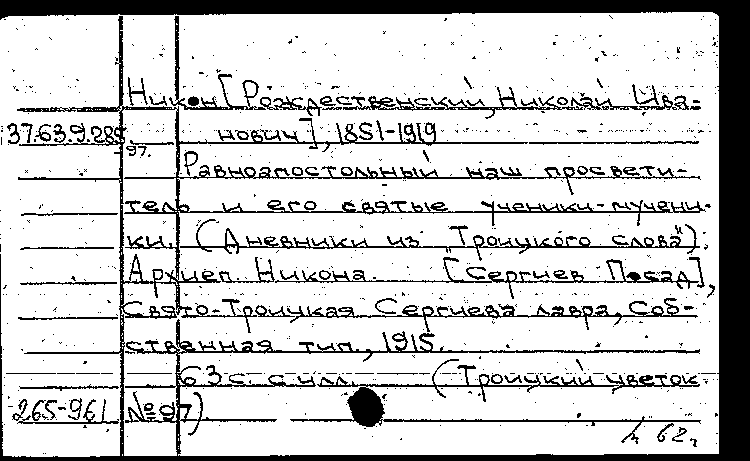 Никон [Рождественский, Николай Ива-
37.63.9.289. нович], 1851-1919
-97.
Равноапостольный наш просвети-
тель и его святые ученики-мучени-
ки. (Дневники из „Троицкого слова“).
Архиеп. Никона. [Сергиев Посад],
Свято-Троицкая Сергиева лавра, соб-
ственная тип., 1915.
63 с. с илл. (Троицкий цветок
265-961 № 97)
62г